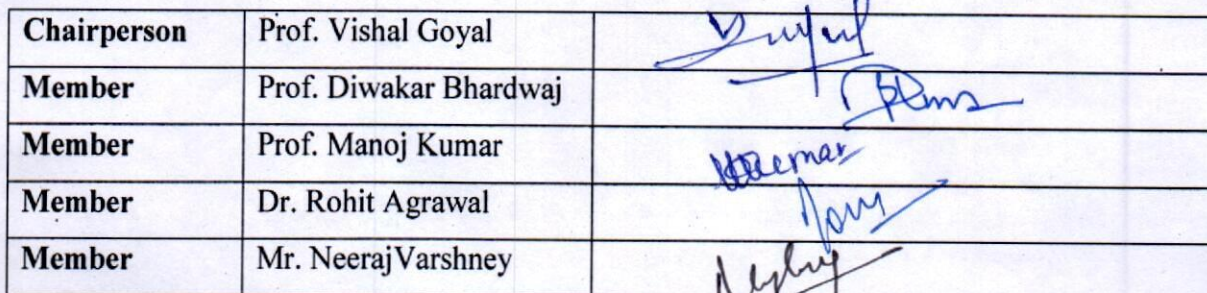 Chairperson Prof. Vishal Goyal
Member Prof. Diwakar Bhardwaj
Member Prof. Manoj Kumar
Member Dr. Rohit Agrawal
Member Mr. NeerajVarshney